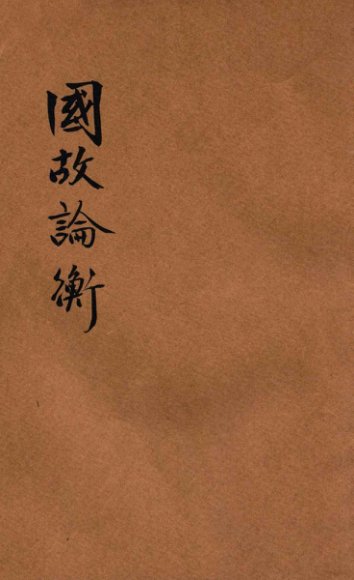 國故論衡